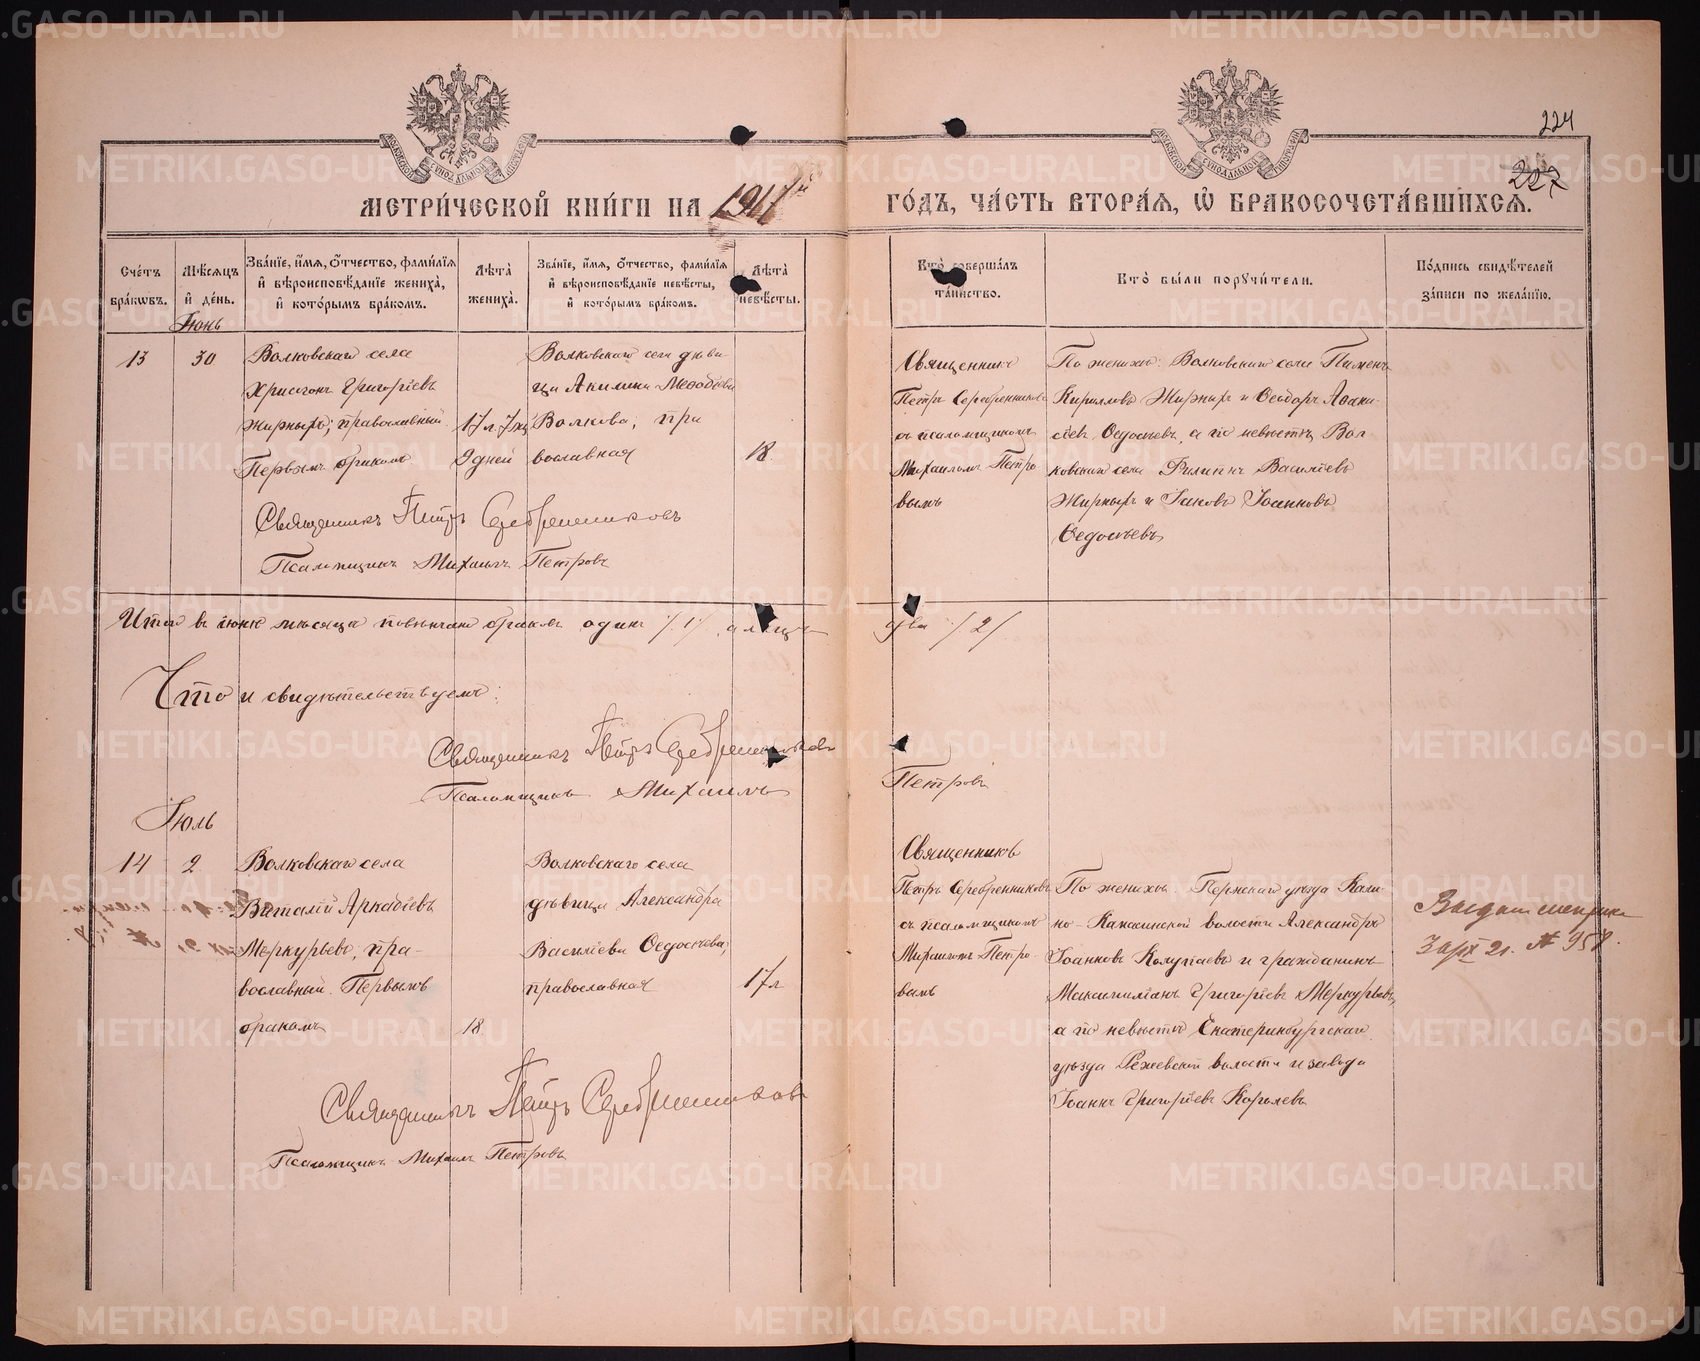 224
227
МЕТРИ́ЧЕСКОЙ КНИ́ГИ НА 1917й ГО́ДЪ, ЧА́СТЬ ВТОРА́Я, Ѽ БРАКОСОЧЕТА́ВШИХСЯ.
Сче́тъ бра́кѡвъ.
Мѣ́сяцъ и҆ де́нь.
Зва́нїе, и҆́мя, ѻ҆́тчество, фами́лїя и҆ вѣроисповѣ́данїе жениха̀, и҆ кото́рымъ бра́комъ.
Лѣта̀ жениха̀.
Зва́нїе, и҆́мя, ѻ҆́тчество, фами́лїя и҆ вѣроисповѣ́данїе невѣ́сты, и҆ кото́рымъ бра́комъ.
Лѣта̀ невѣ́сты.
Кто̀ соверша́лъ та́инство.
Кто̀ бы́ли порꙋчи́тели.
По́дпись свидѣ́телей за́писи по жела́нїю.
Іюнь
13
30
Волковскаго села
Хрисагонъ Григоріевъ
Жирныхъ, православный
Первымъ бракомъ
17 л. 7 мц
9 дней
Волковскаго села дѣви
ца Акилина Меѳодіева
Волкова, пра
вославная
18
Священникъ
Петръ Серебренниковъ
съ псаломщикомъ
Михаиломъ Петро
вымъ
По женихѣ: Волковскаго села Пименъ
Кирилловъ Жирныхъ и Ѳеодоръ Аѳана
сіевъ Ѳедосѣевъ, а по невѣстѣ Вол
ковскаго села Филиппъ Василіевъ
Жирныхъ и Іаковъ Іоанновъ
Ѳедосѣевъ
Священникъ Петръ Серебренниковъ
Псаломщикъ Михаилъ Петровъ
Итого въ іюнѣ мѣсяцѣ повѣнчано бракъ одинъ /1/, а лицъ два /2/
Что и свидѣтельствуемъ:
Священникъ Петръ Серебренниковъ
Псаломщикъ Михаилъ Петровъ
Іюль
14
2
Волковскаго села
Виталій Аркадіевъ
Меркурьевъ, пра-
вославный. Первымъ
бракомъ
18
Волковскаго села
дѣвица Александра
Василіева Ѳедосѣева,
православная
17 л
Священникъ
Петръ Серебренниковъ
съ псаломщикомъ
Михаиломъ Петро
вымъ
По женихѣ: Пермскаго уѣзда Кали
но-Камасинской волости Александръ
Іоанновъ Колупаевъ и гражданинъ
Максимиліанъ Григоріевъ Меркурьевъ,
а по невѣстѣ Екатеринбургскаго
уѣзда Режевской волости и завода
Іоаннъ Григоріевъ Королевъ
Выдана метрика
3 арх 21. № 958.
Священникъ Петръ Серебренниковъ
Псаломщикъ Михаилъ Петровъ
METRIKI.GASO-URAL.RU